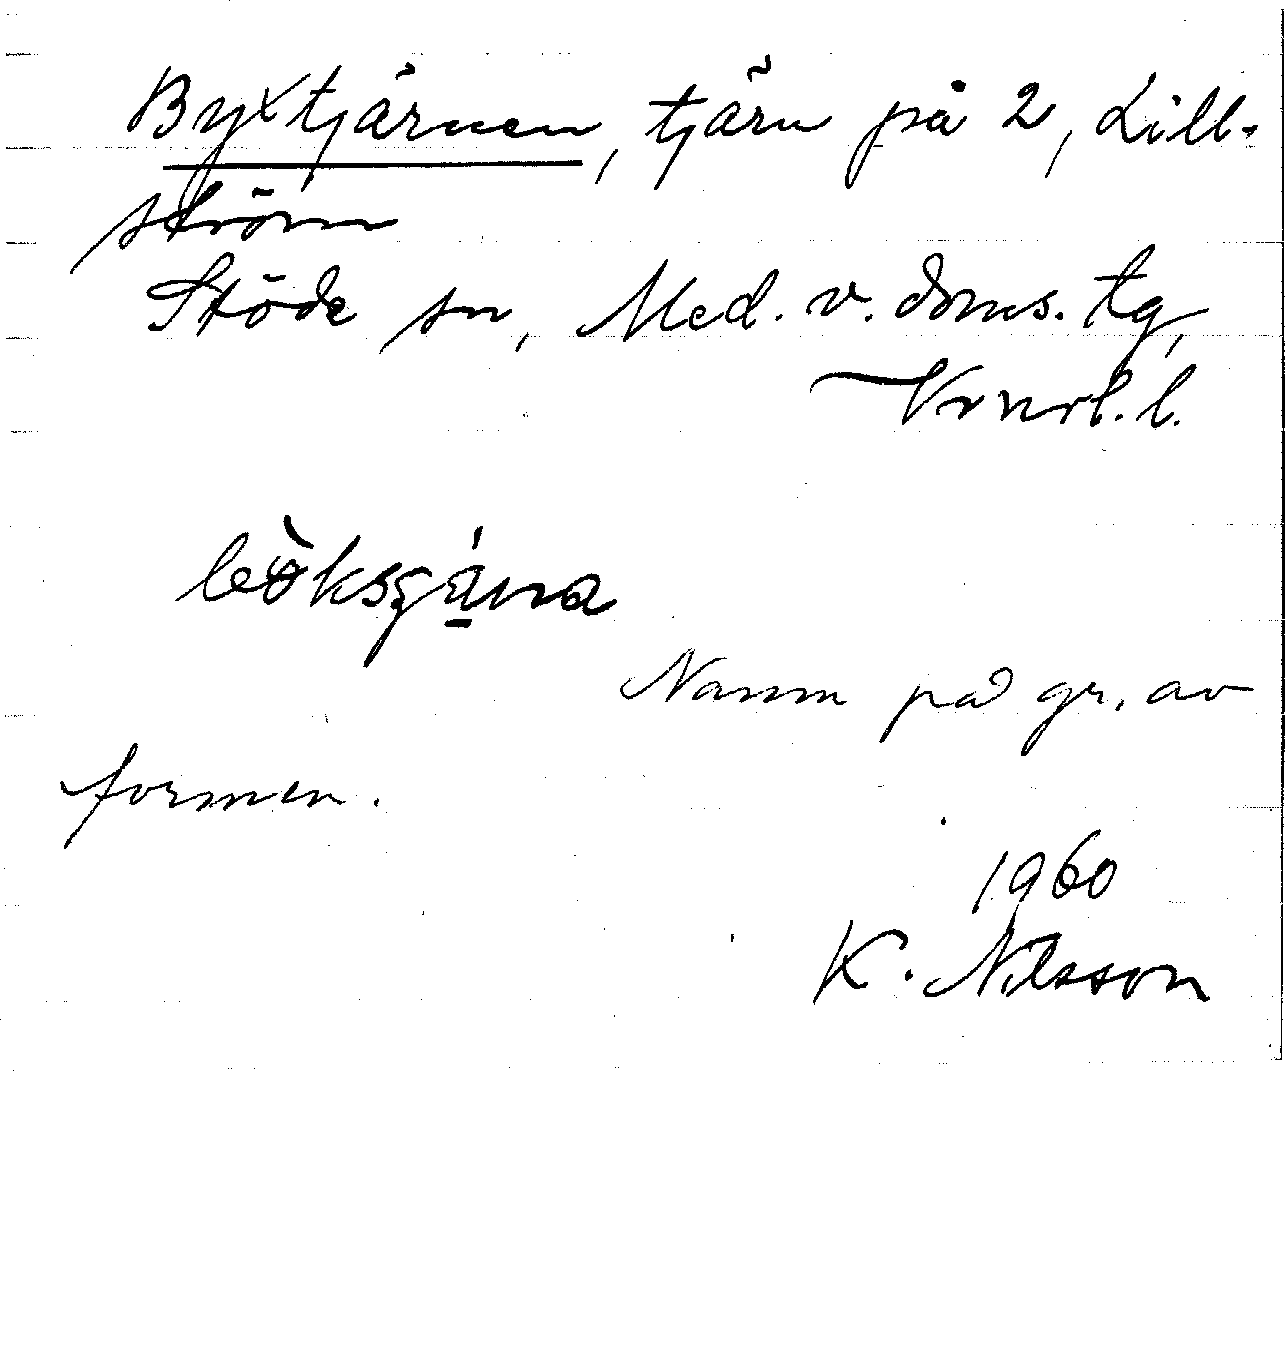 Byxtjärnen, tjärn på 2, Lill-
ström
Stöde sn, Med. v. doms. tg,
Vrnrl. l.
Namn på gr. av
formen.
1960
K. Nilsson